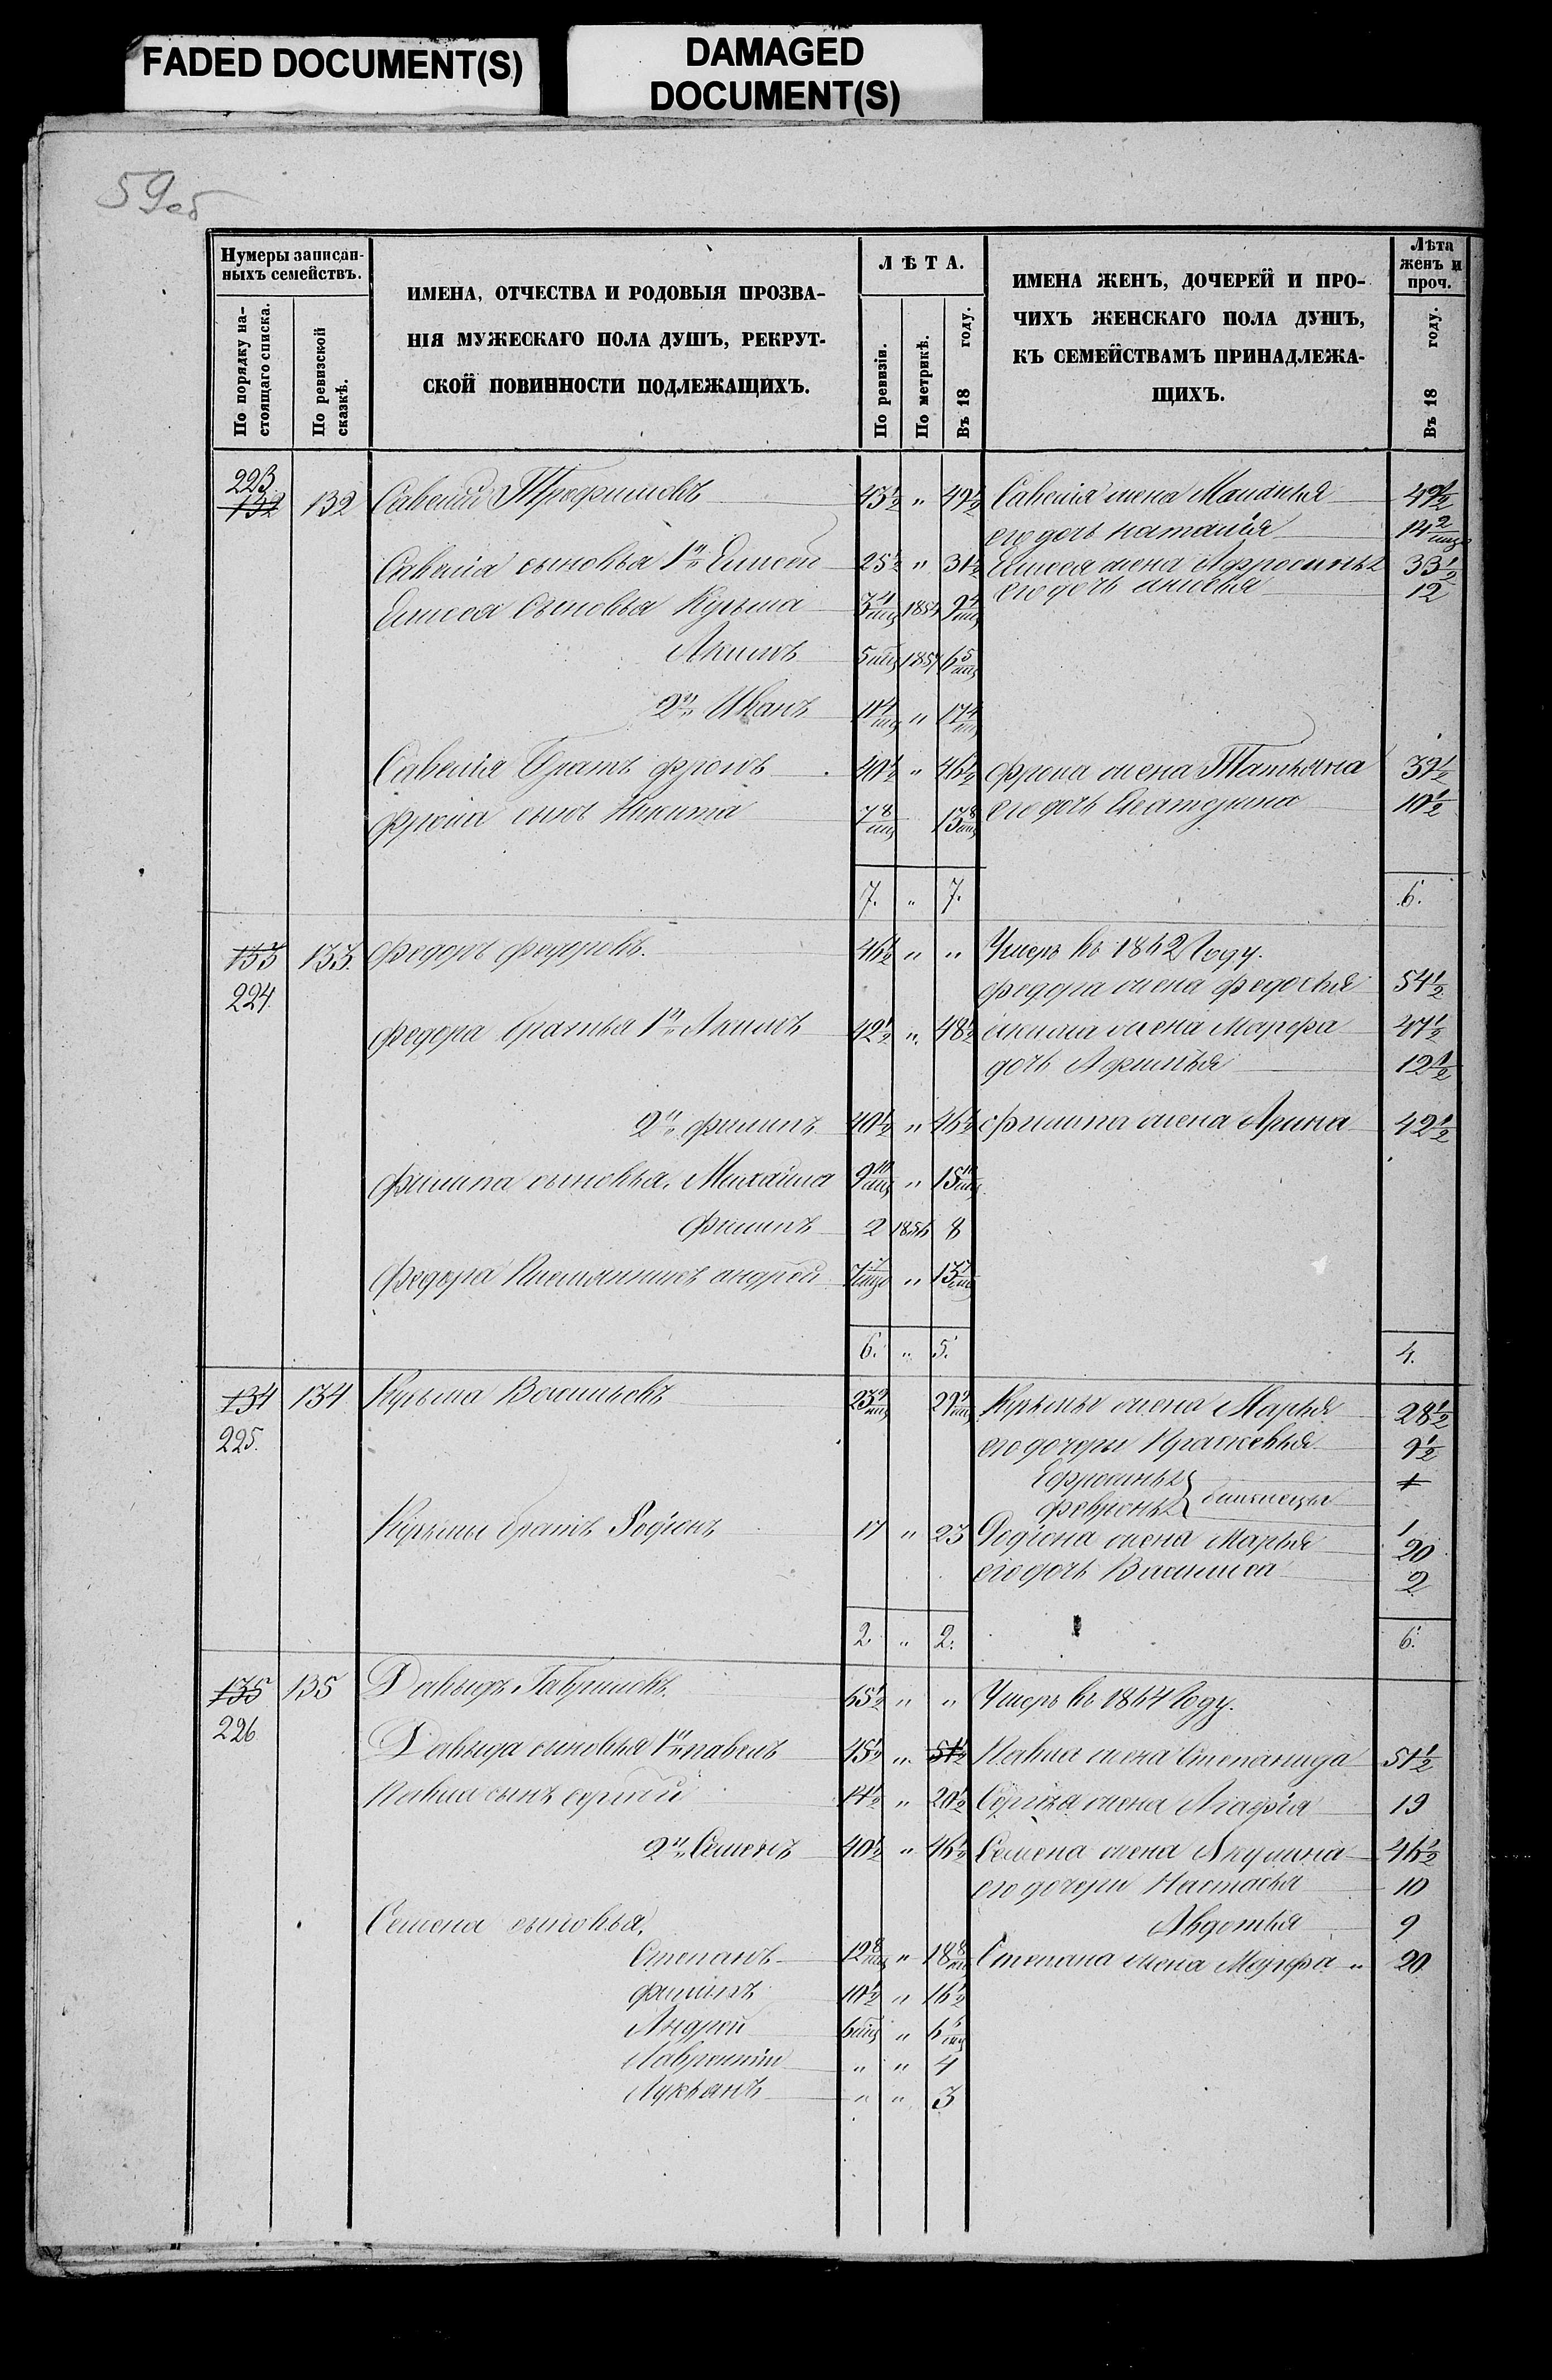 FADED DOCUMENT(S)
DAMAGED
DOCUMENT(S)
59об
Нумеры записан-
ныхъ семействъ.
По порядку на-
стоящаго списка.
По ревизской
сказкѣ.
ИМЕНА, ОТЧЕСТВА И РОДОВЫЯ ПРОЗВА-
НІЯ МУЖЕСКАГО ПОЛА ДУШЪ, РЕКРУТ-
СКОЙ ПОВИННОСТИ ПОДЛЕЖАЩИХЪ.
ЛѢТА.
По ревизіи.
По метрикѣ.
Въ 18 году.
ИМЕНА ЖЕНЪ, ДОЧЕРЕЙ И ПРО-
ЧИХЪ ЖЕНСКАГО ПОЛА ДУШЪ,
КЪ СЕМЕЙСТВАМЪ ПРИНАДЛЕЖА-
ЩИХЪ.
Лѣта
женъ и
проч.
Въ 18 году.
223
132 132 Савелий Трофимовъ 43½ " 49½ Савелія жена Маланья 49½
его дочь наталія 14 2/мца
Савелія сыновья 1й Елисей 25½ " 31½ Елисея жена Афросинья 33½
его дочь анисья 12
Елисея сыновья Кузьма 3 4/мца 1854 9 4/мца
Акимъ 5 мца 1857 6 5/мца
2й Иванъ 11 4/мца " 17 4/мца
Савелія братъ фролъ 40½ " 46½ фрола жена Татьяна 39½
фрола сынъ Никита 7 8/мца 13 8/мца его дочь Екатерина 10½
7. " 7. 6.
133 133. федоръ федоровъ. 46½ " " Умеръ въ 1862 Году.
224. федора жена федосья 54½
федора братья 1й Акимъ 42½ " 48½ акима жена Марфа 47½
дочь Афимья 12½
2й филипъ 40½ " 46½ филипа жена Арина 42½
филипа сыновья, Михайла 9 10/мца " 15 10/мца
филипъ 2 1856 8
федора племянникъ андрей 7 7/мца " 13 7/мца
6. " 5. 4.
134 134 Кузьма Васильевъ 23 9/мца 29 9/мца Кузьмы жена Марья 28½
225. его дочери Прасковья 9½
Ефросинья
февронья } близнецы 1
Кузьмы братъ Родіонъ 17 " 23 Родіона жена Марья 20
его дочь Василиса 2
2 " 2. 6.
135 135 Давыдъ Гавриловъ. 65½ " " Умеръ въ 1864 Году.
226 Давыда сыновья 1й павелъ 45½ " 51½ Павла жена Степанида 51½
Павла сынъ сергей 14½ " 20½ Сергѣя жена Агафія 19
2й Семенъ 40½ " 46½ Семена жена Акулина 46½
его дочери Настасья 10
Семена сыновья, Авдотья 9
Степанъ 12 8/мца " 18 8/мца Степана жена Марфа " 20
филипъ 10½ " 16½
Андрей 6 мца " 6 6/мца
Лаврентій " " 4
Лукьянъ " " 3